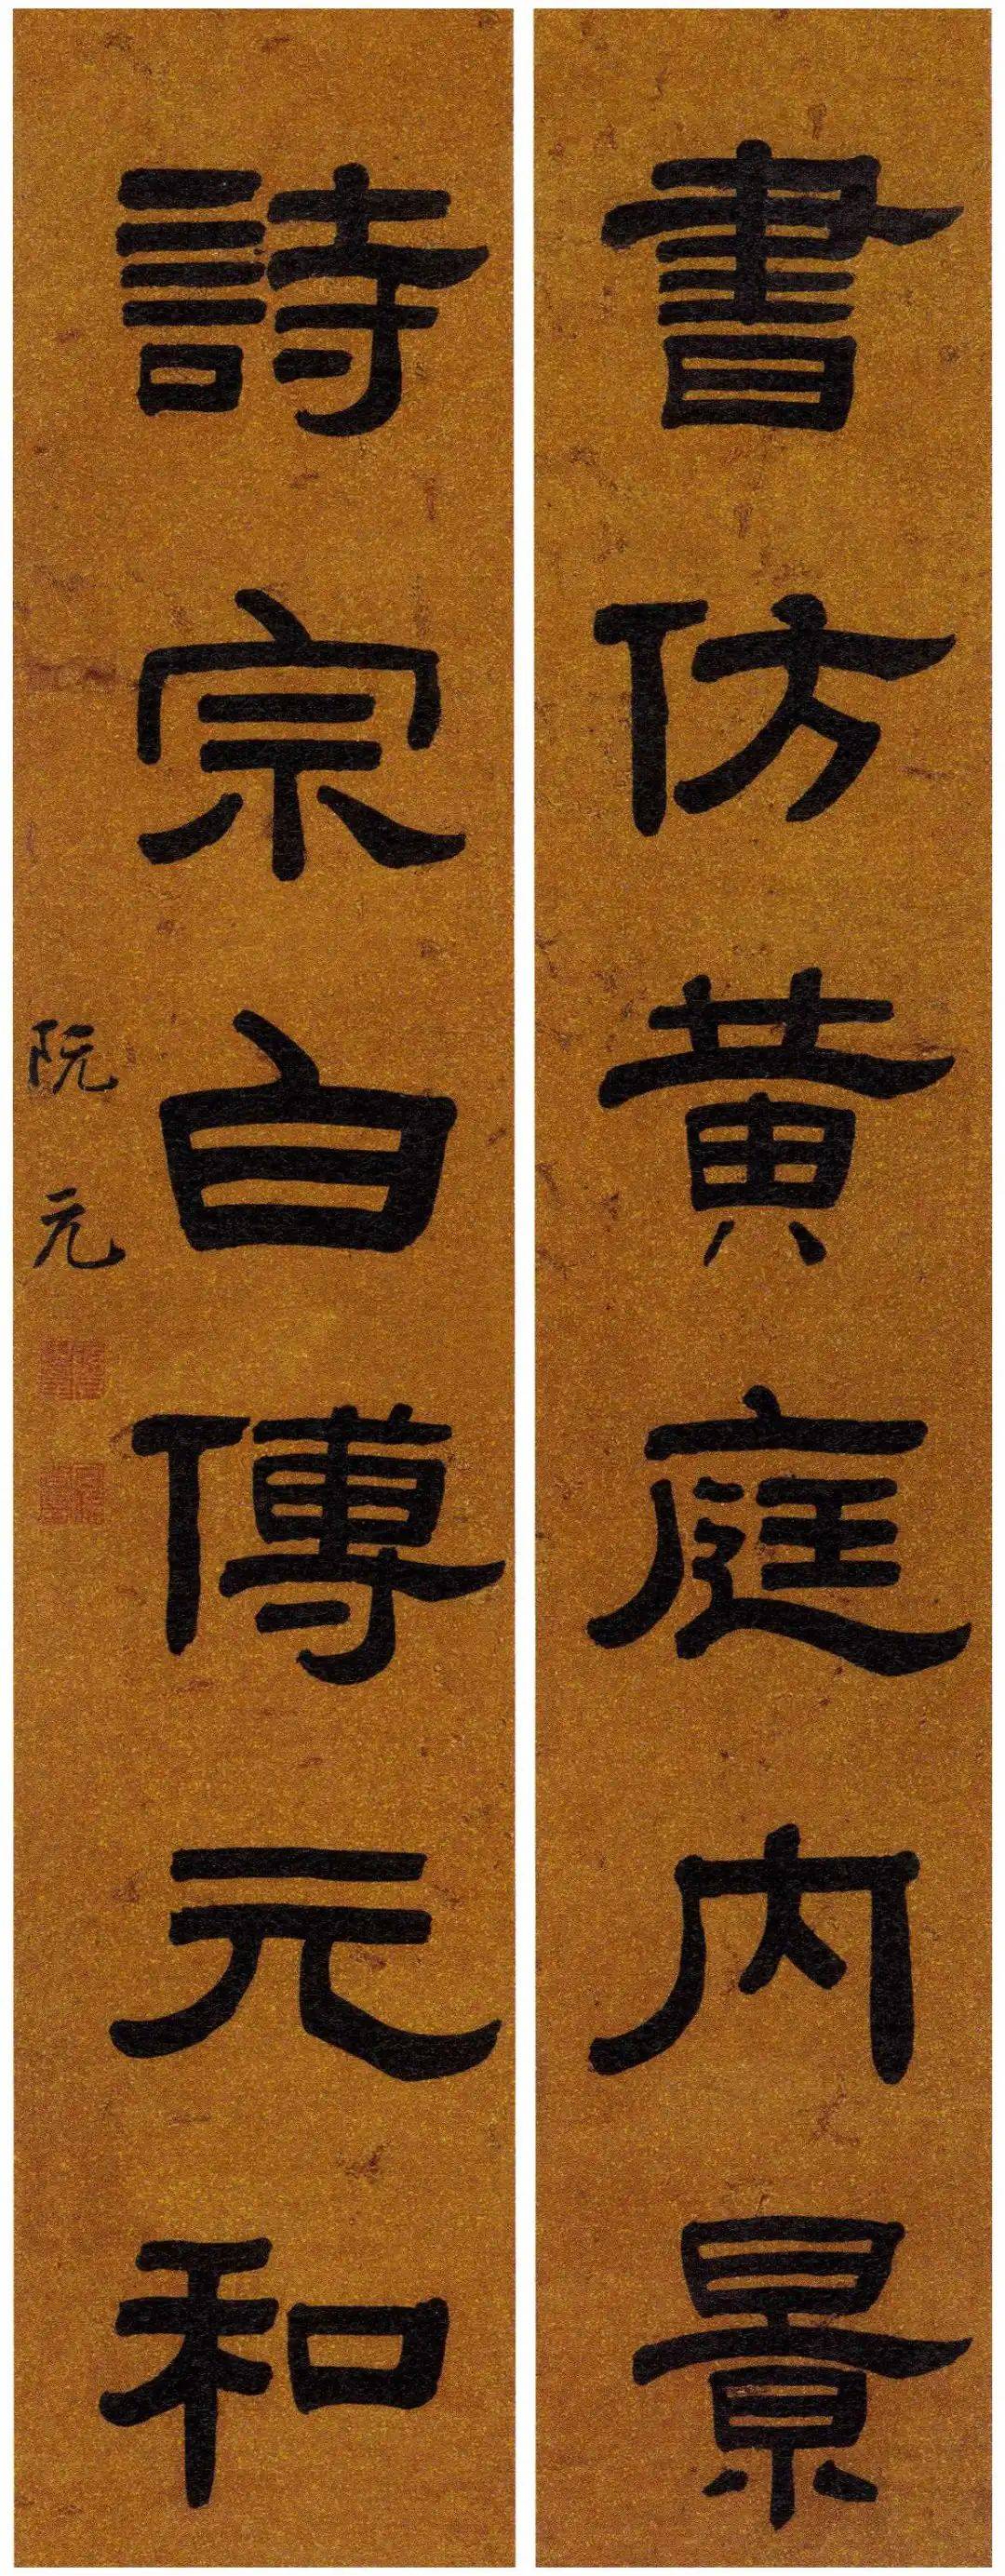 書仿黄庭内景
詩宗白傅元和
阮元